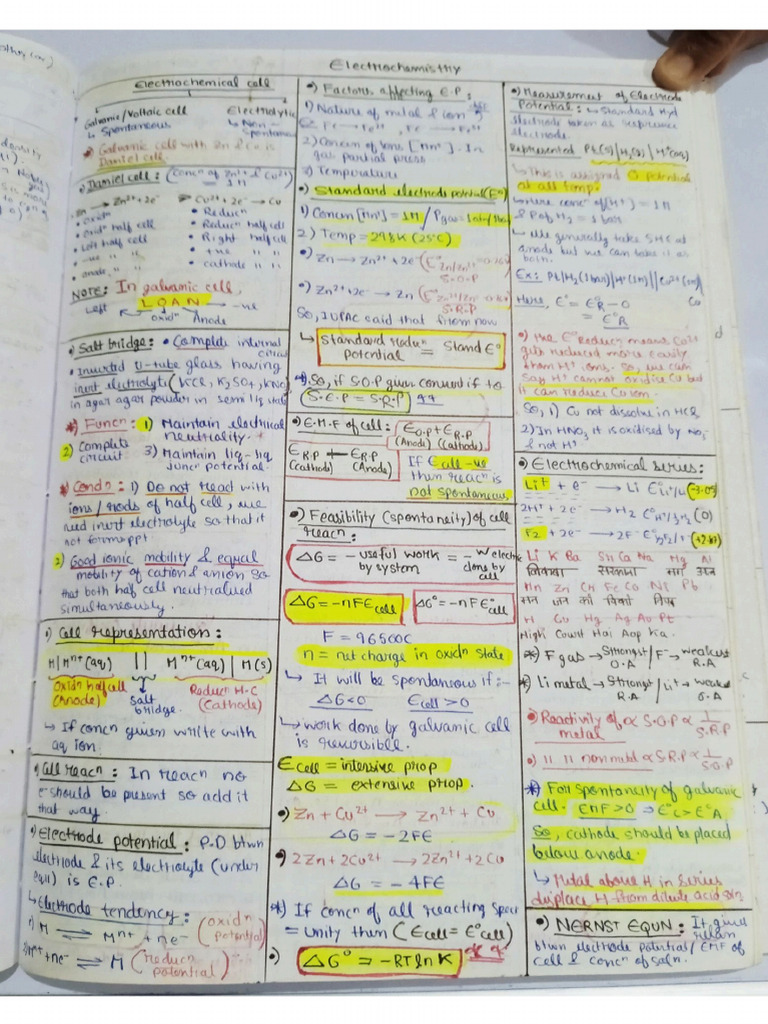 Electrochemistry
Electrochemical cell
Galvanic/Voltaic cell Electrolytic
↳ Spontaneous ↳ Non-
Spontaneous
Galvanic cell with Zn & Cu is
Daniel cell.
Daniel cell: (Concn of Zn²⁺ & Cu²⁺)
= 1M
Zn → Zn²⁺ + 2e⁻ Cu²⁺ + 2e⁻ → Cu
• Oxidn • Reducn
• Oxdn half cell • Reducn half cell
• Left half cell • Right half cell
• -ve " " • +ve " "
• anode " " • cathode " "
NOTE: In galvanic cell,
LOAN
Left -ve
oxidn Anode
•) Salt bridge: • Complete internal
circuit
• Inverted U-tube glass having
inert electrolyte (KCl, K₂SO₄, KNO₃)
in agar agar powder in semi liq state
*) Funcn: 1) Maintain electrical
neutrality.
2) Complete circuit 3) Maintain liq-liq
juncn potential.
*) Condn: 1) Do not react with
ions/rods of half cell, we
need inert electrolyte so that it
not form ppt.
2) Good ionic mobility & equal
mobility of cation & anion so
that both half cell neutralised
simultaneously.
•) Cell representation:
M|Mⁿ⁺(aq) || Mⁿ⁺(aq)|M(s)
Oxidn half cell (Anode) Salt bridge. Reducn H.C (Cathode)
↳ If concn given write with
aq ion.
•) Cell reacn: In reacn no
e⁻ should be present so add it
that way.
•) Electrode potential: P.D btwn
electrode & its electrolyte (under
eqll) is E.P.
↳ Electrode tendency:
1) M ⇌ Mⁿ⁺ + ne⁻ (oxidn potential)
Mⁿ⁺ + ne⁻ ⇌ M (reducn potential)
•) Factors affecting E.P:
1) Nature of metal & ion
Ex: Fe → Fe²⁺, Fe → Fe³⁺
2) Concn of ions [Mⁿ⁺]. In
gas partial press
3) Temperature
•) Standard electrode potential (E°)
1) Concn [Mⁿ⁺] = 1M / Pgas = 1atm/1bar
2) Temp = 298K (25°C)
•) Zn → Zn²⁺ + 2e⁻ (E°Zn/Zn²⁺ = 0.76V)
S.O.P
•) Zn²⁺ + 2e⁻ → Zn (E°Zn²⁺/Zn = -0.76V)
S.R.P
So, IUPAC said that from now
↳ Standard reducn potential = Stand E°
*) So, if S.O.P given convert if to
S.E.P = S.R.P
•) E.M.F of cell: E O.P + E R.P
(Anode) (Cathode)
E R.P - E R.P
(Cathode) (Anode)
If E cell -ve
then reacn is
not spontaneous
•) Feasibility (spontaneity) of cell
reacn:
ΔG = - useful work by system = - W electric done by cell
ΔG = -nFEcell ΔG° = -nFE°cell
F = 96500C
n = net charge in oxidn state
↳ It will be spontaneous if :-
ΔG<0 Ecell>0
↳ work done by galvanic cell
is reversible.
Ecell = intensive prop
ΔG = extensive prop.
•) Zn + Cu²⁺ → Zn²⁺ + Cu
ΔG = -2FE
•) 2Zn + 2Cu²⁺ → 2Zn²⁺ + 2Cu
ΔG = -4FE
*) If concn of all reacting spec
= unity then (Ecell = E°cell)
•) ΔG° = -RT ln K
•) Measurement of Electrode
Potential: ↳ Standard Hyd
electrode taken as reference
electrode.
Represented Pt(s)|H₂(g)|H⁺(aq)
↳ This is assigned 0 potential
at all temp.
↳ Here concn of [H⁺] = 1M
& P of H₂ = 1 bar
↳ We generally take SHE at
anode but we can take it as
both.
Ex: Pt|H₂(1bar)|H⁺(1M)||Cu²⁺(1M)|
Cu
Here, E° = E°R - 0
= E°R
•) The E° Reducn means Cu²⁺
gets reduced more easily
than H⁺ ions. So, we can
say H⁺ cannot oxidise Cu but
it can reduce Cu ion.
So, 1) Cu not dissolve in HCl
2) In HNO₃ it is oxidised by NO₃⁻
& not H⁺
•) Electrochemical series:
Li⁺ + e⁻ → Li E°Li⁺/Li (-3.05)
2H⁺ + 2e⁻ → H₂ (0)
F₂ + 2e⁻ → 2F⁻ (+2.87)
Li K Ba Sr Ca Na Mg Al
Mn Zn Cr Fe Co Ni Pb
H Cu Hg Ag Au Pt
High Court Hai Aap Ka.
*) F gas → Strongest O.A / F⁻ → weakest R.A
*) Li metal → Strongest R.A / Li⁺ → weakest O.A
•) Reactivity of metal ∝ S.O.P ∝ 1/S.R.P
•) " " non metal ∝ S.R.P ∝ 1/S.O.P
*) For spontaneity of galvanic
cell. EMF > 0 ⇒ E°C > E°A
So, cathode should be placed
below anode.
↳ Metal above H in series
displace H from dilute acid soln
•) NERNST EQUN: It gives
relan
btwn electrode potential/EMF of
cell & concn of soln.